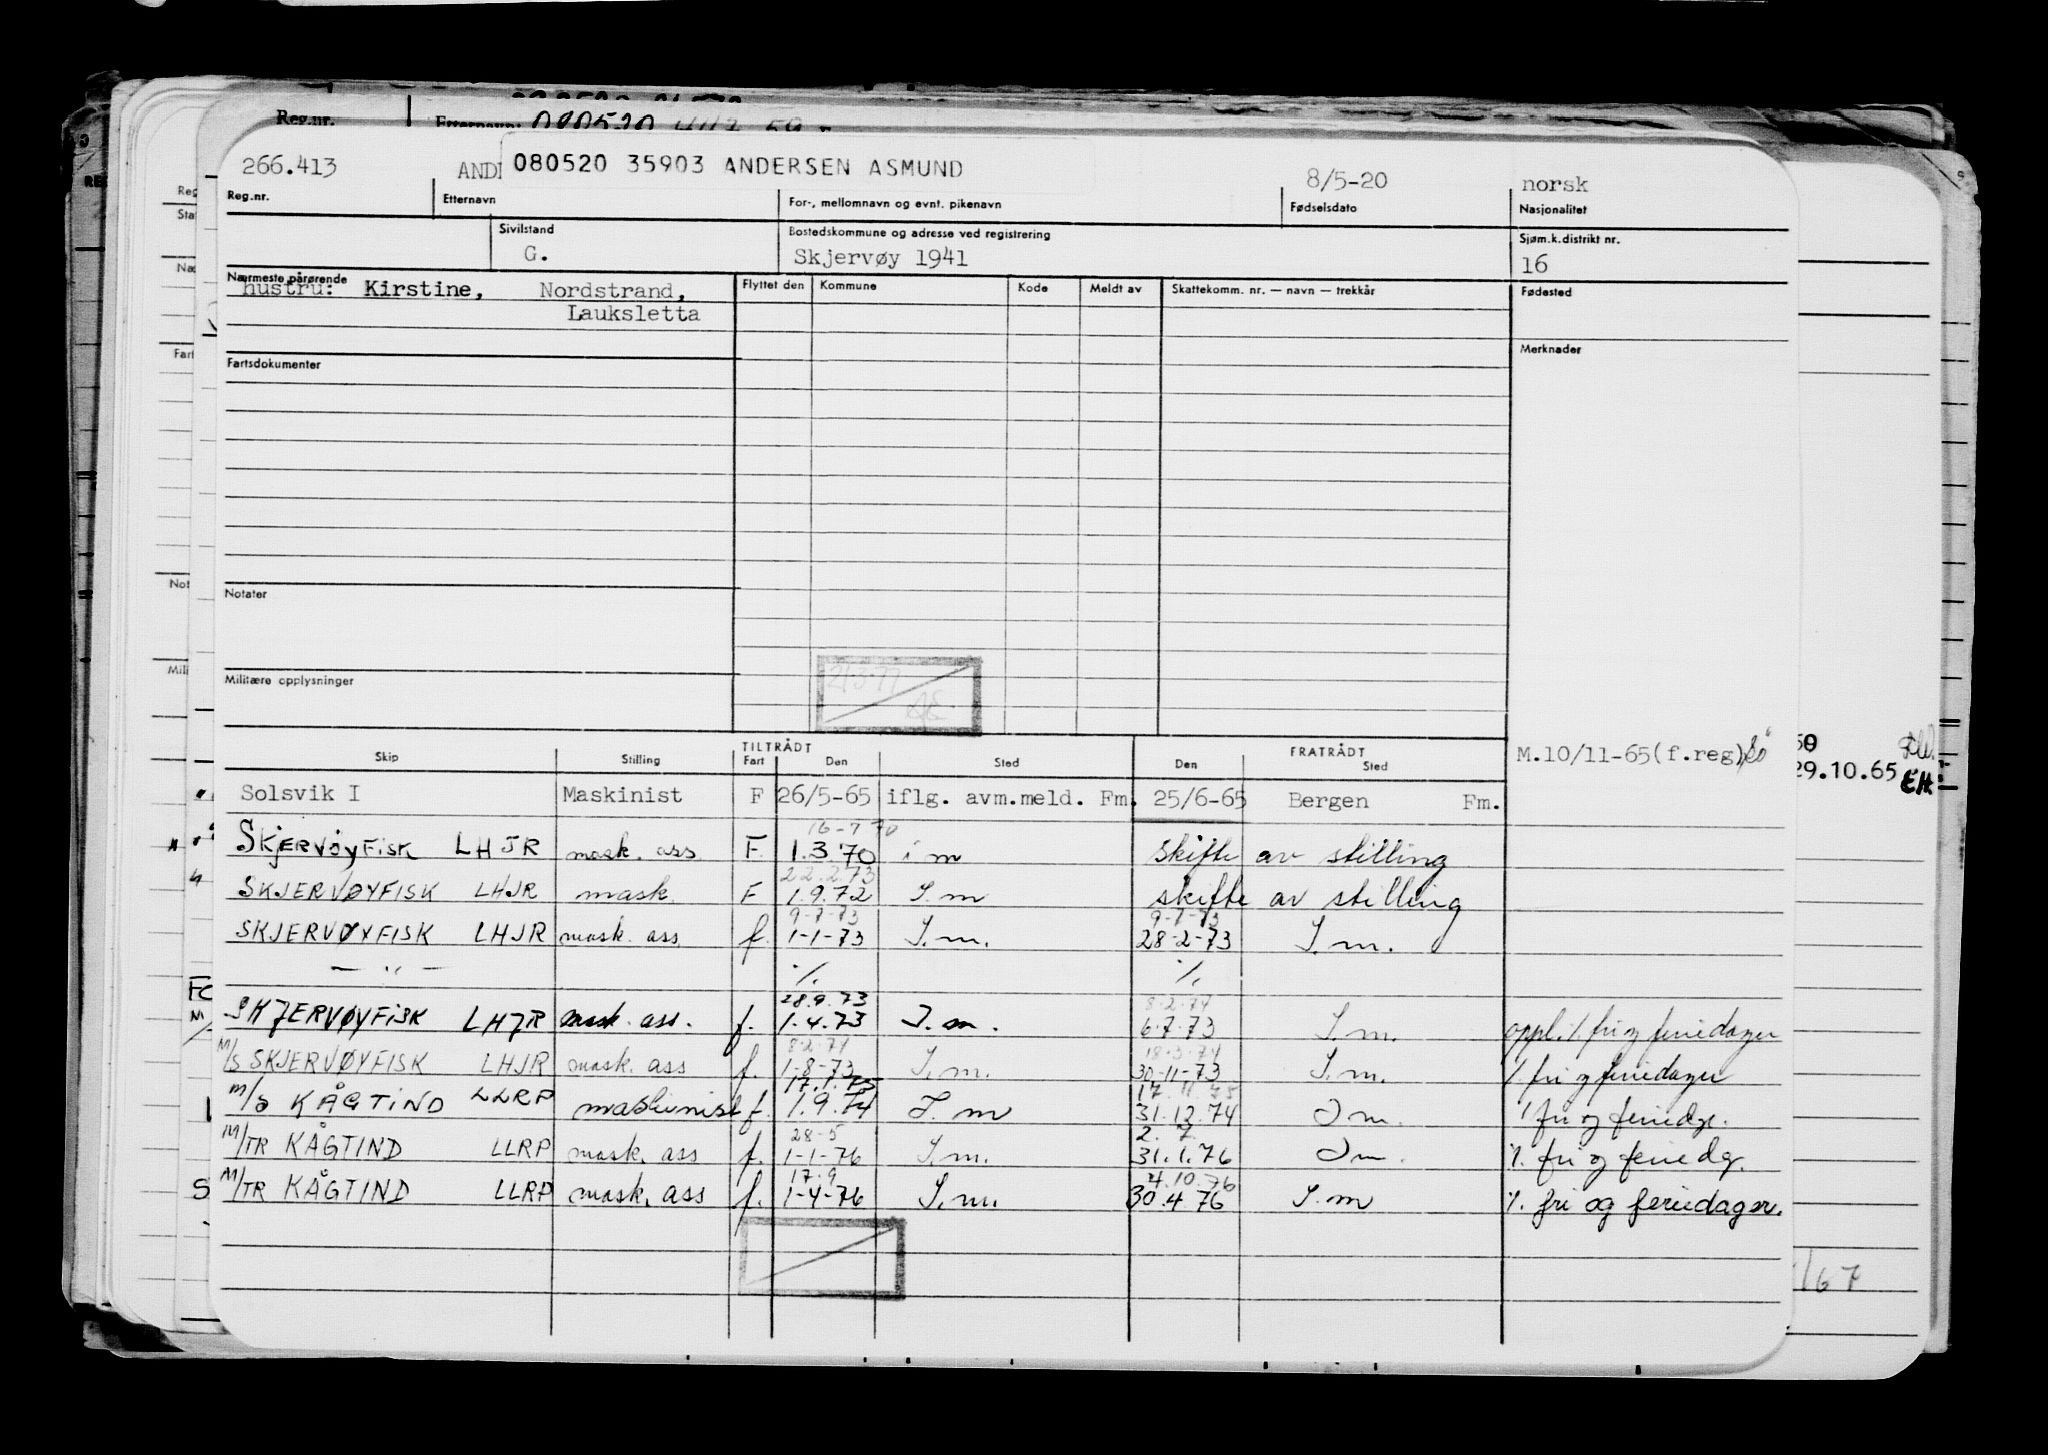 Reg.nr.
266.413 ANDE 080520 35903 ANDERSEN ASMUND 8/5-20 norsk
Reg.nr. Etternavn For-, mellomnavn og evnt. pikenavn Fødselsdato Nasjonalitet
Sivilstand Bostedskommune og adresse ved registrering Sjøm.k.distrikt nr.
G. Skjervøy 1941 16
Nærmeste pårørende Flyttet den Kommune Kode Meldt av Skattekomm. nr. — navn — trekkår Fødested
hustru: Kirstine, Nordstrand,
Lauksletta
Fartsdokumenter Merknader
Notater
Militære opplysninger
21.3.77
TILTRÅDT FRATRÅDT
Skip Stilling Fart Den Sted Den Sted M.10/11-65(f.reg)
29.10.65 EH
Solsvik I Maskinist F 26/5-65 iflg. avm.meld. Fm. 25/6-65 Bergen Fm.
16-7 70
SKJERVØYFISK LHJR mask. ass F. 1.3.70 i m skifte av stilling
22.2.73
SKJERVØYFISK LHJR mask. F 1.9.72 I.m skifte av stilling
9-7-73 9-7-73
SKJERVØYFISK LHJR mask. ass f. 1-1-73 I.m. 28-2-73 I.m.
— " — ·/. ·/.
28.9.73 8-2-74
SKJERVØYFISK LHJR mask. ass. f. 1-4-73 I.m. 6-7-73 I.m. oppl. ·/. fri og feriedager
8-2-74 18-3-74
M/S SKJERVØYFISK LHJR mask. ass f. 1-8-73 I.m. 30-11-73 I.m. ·/. fri og feriedager
17.1.75 17. 11. 75
M/S KÅGTIND LLRP maskinist f. 1.9.74 I.m 31.12.74 I m. ·/. fri og feriedg.
28-5 2. 7.
M/TR KÅGTIND LLRP mask. ass f. 1-1-76 I.m. 31.1.76 I m. ·/. fri og feriedg.
17.9 4.10.76
M/TR KÅGTIND LLRP mask. ass f. 1-4-76 I.m. 30.4 76 I.m ·/. fri og feriedager.
/67